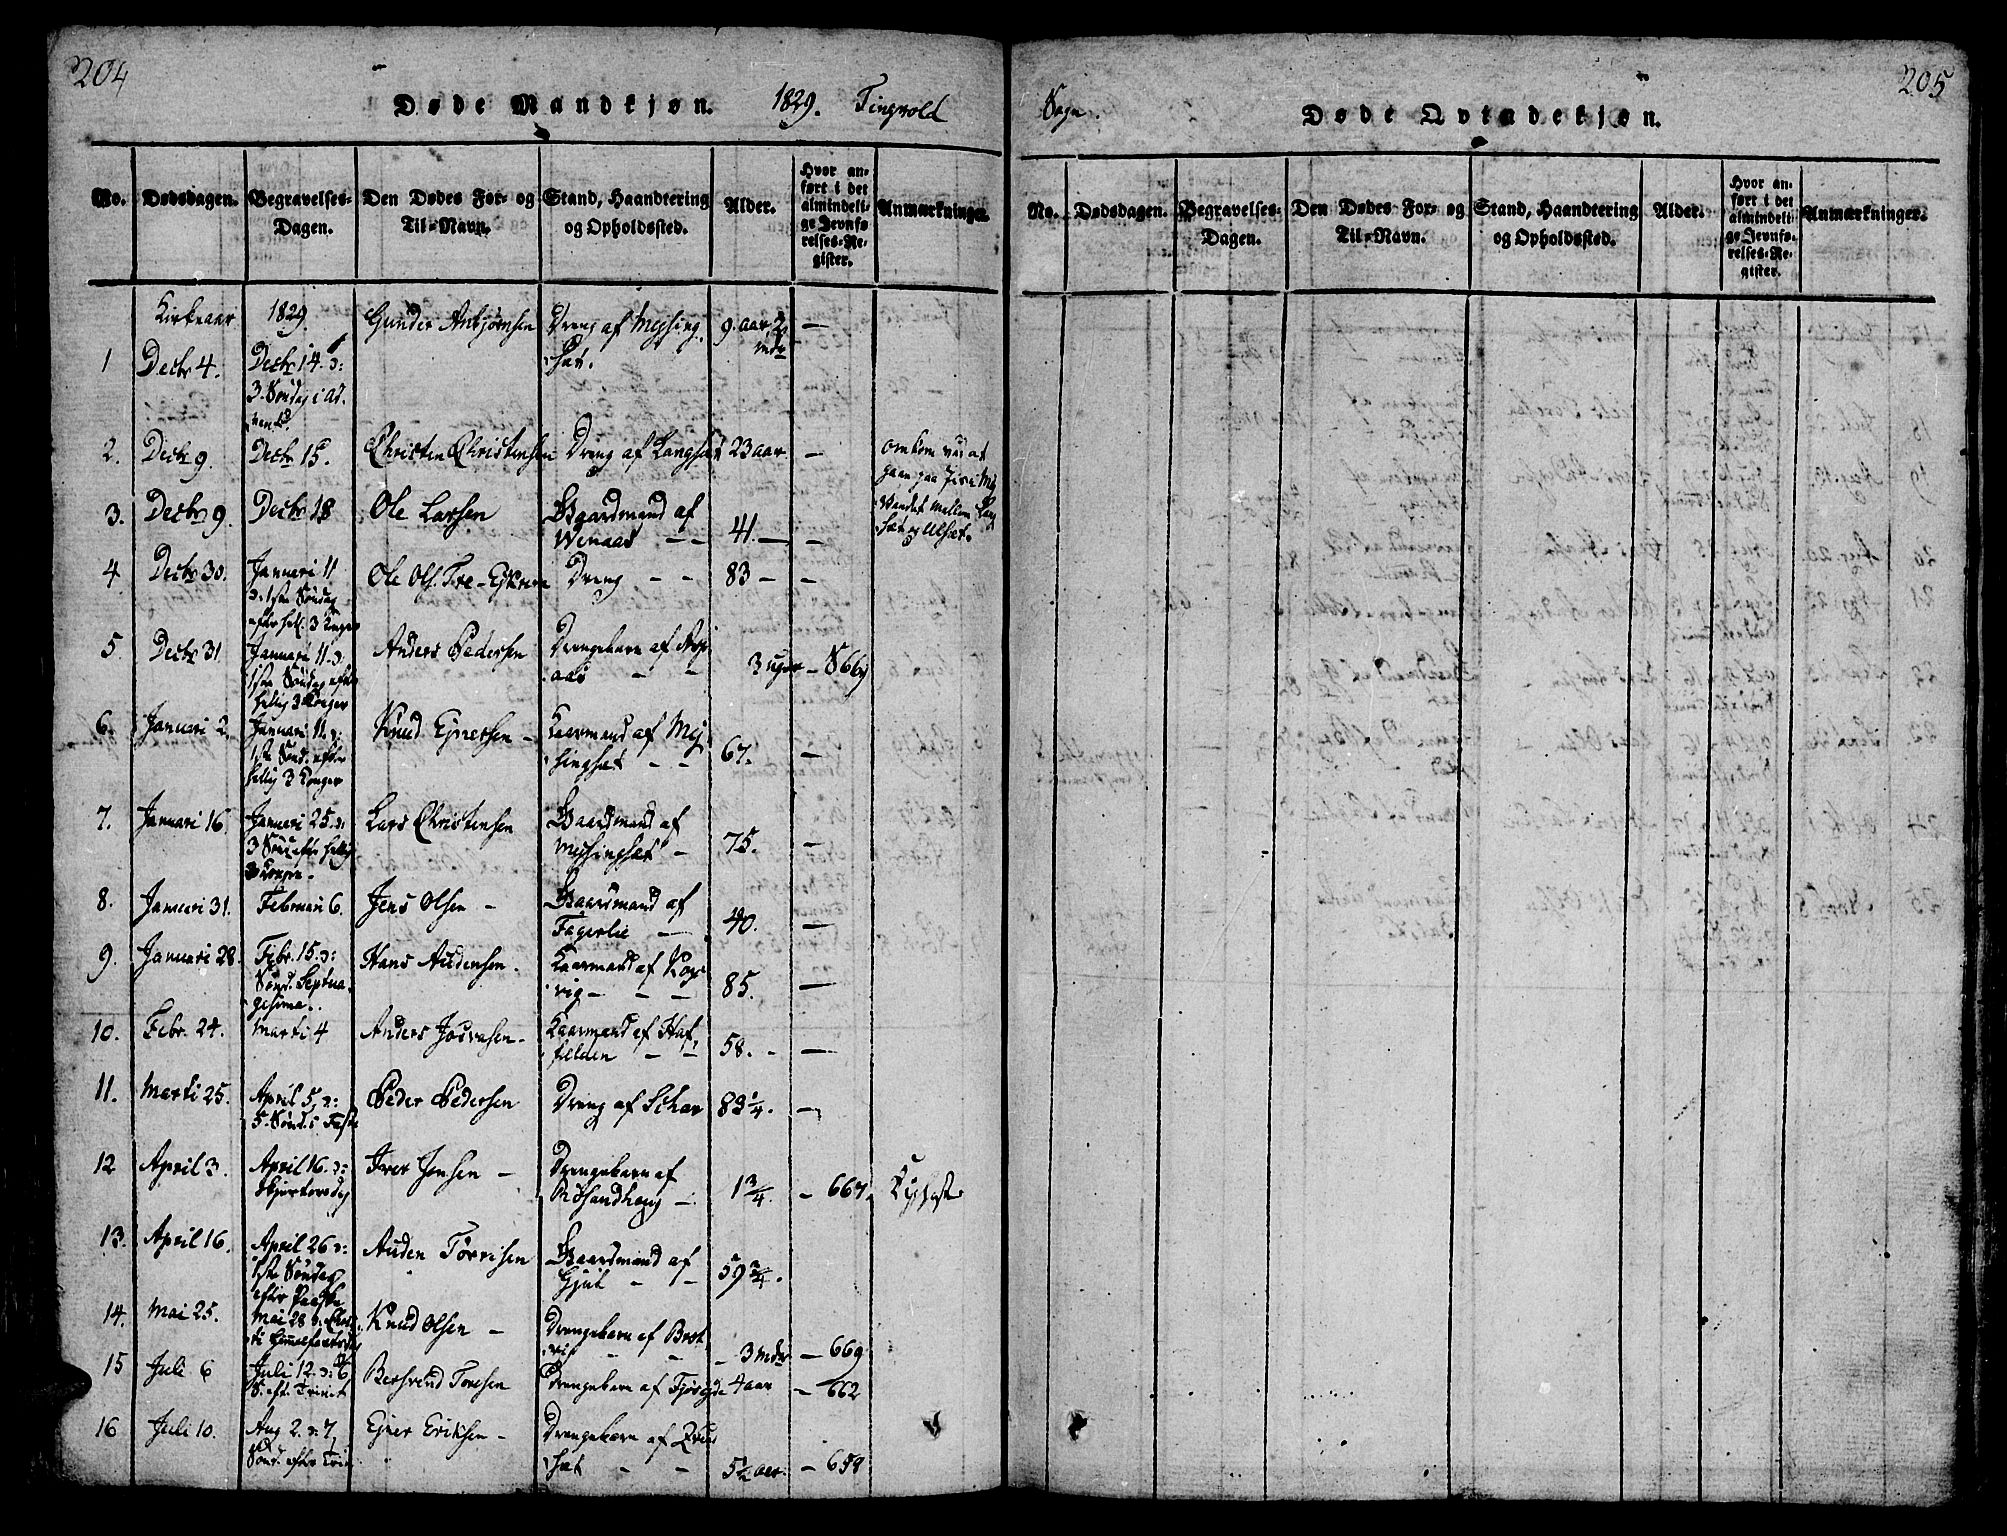 204
Døde Mandkjøn. 1829. Tingvold
No. Dødsdagen. Begravelses-Dagen. Den Dødes For- og Til-Navn. Stand, Haandtering og Opholdssted. Alder. Hvor anført i det almindelige Jevnførelses-Register. Anmærkninger.
Kirkeaar 1829.
1 Decbr 4. Decbr 14. ɔ: 3. Søndag i Advent. Gunder Anbjørnsen Dreng af Meisingset. 9. aar, 2 mdr —
2. Decbr 9. Decbr 15. Christen Christensen Dreng af Langset 23 aar. — omkom ved at gaae paa Isen
Vandet mellem
3. Decbr 9. Decbr 18 Ole Larsen Gaardmand af Wenaas — — 41. — —
4. Decbr 30. Januari 11 ɔ: 1ste Søndag efter hel. 3 Konger Ole Ols. Dreng — — 83 — —
5. Decbr 31 Januari 11. ɔ. 1ste Søndag efter hellig 3 Konger Anders Pedersen Drengebarn af Aspaas — — 3 uger — 866
6. Januari 2. Januari 11. ɔ: 1ste Sønd. efter hellig 3 Konger Knud Ejnersen — Kaarmand af Mejsingset — — 67. —
7. Januari 16. Januari 25. ɔ: 3 Sønd efter hellig 3 Konger. Lars Christensen Gaardmand af Messingset — 75. —
8. Januari 31. Februari 6. Jens Olsen — Gaardmand af Fagerlie — 40. —
9. Januari 28. Febr. 15. ɔ: Sønd. Septuagesima. Hans Audensen. Kaarmand af — — 85. —
10. Febr. 24. Marti 4 Anders Josvasen — Kaarmand af — — 58. — —
11. Marti 25. April 5. ɔ: 5. Sønd. i Faste Peder Pedersen Dreng af 83 1/4. —
12 April 3. April 16. ɔ: Skjertorsdag Iver Jensen — Drengebarn af — 1 3/4. — 667.
13. April 16. April 26 ɔ: 1ste Søndag efter Paaske Auden Tørrisen Gaardmand af Gjul — — 59 3/4.
14. Mai 25. Mai 28 ɔ. Christi Himmelfartsdag Knud Olsen — Drengebarn af — — 3 mdr — 669
15 Juli 6 Juli 12. ɔ: 6 S. eft. Trinit Bersvend Toresen Drengebarn af 4 aar — 662
16 Juli 10. Aug 2. ɔ. 7 Sønd. efter Trin. Ejner Eriksen — Drengebarn af — — 5 1/2 aar. — 658
Sogn.
Døde Qvindekjøn.
205
No. Dødsdagen. Begravelses-Dagen. Den Dødes For- og Til-Navn. Stand, Haandtering og Opholdssted. Alder. Hvor anført i det almindelige Jevnførelses-Register. Anmærkninger.